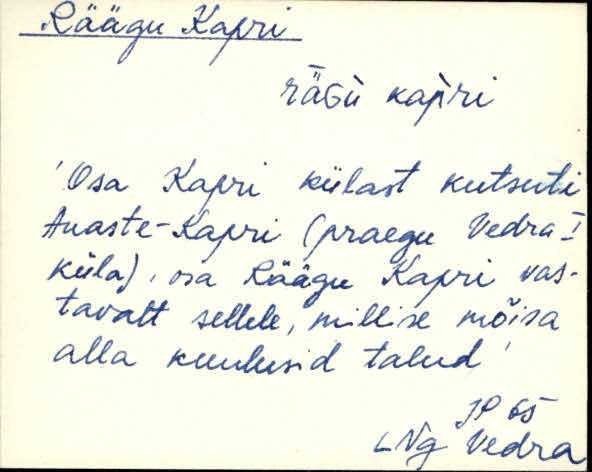 Räägu Kapri
räGù kaƥri
'Osa Kapri külast kutsuti
Auaste-Kapri (praegu Vedra I
küla), osa Räägu Kapri vas-
tavalt sellele, millise mõisa
alla kuulusid talud'
JP 65
LNg Vedra